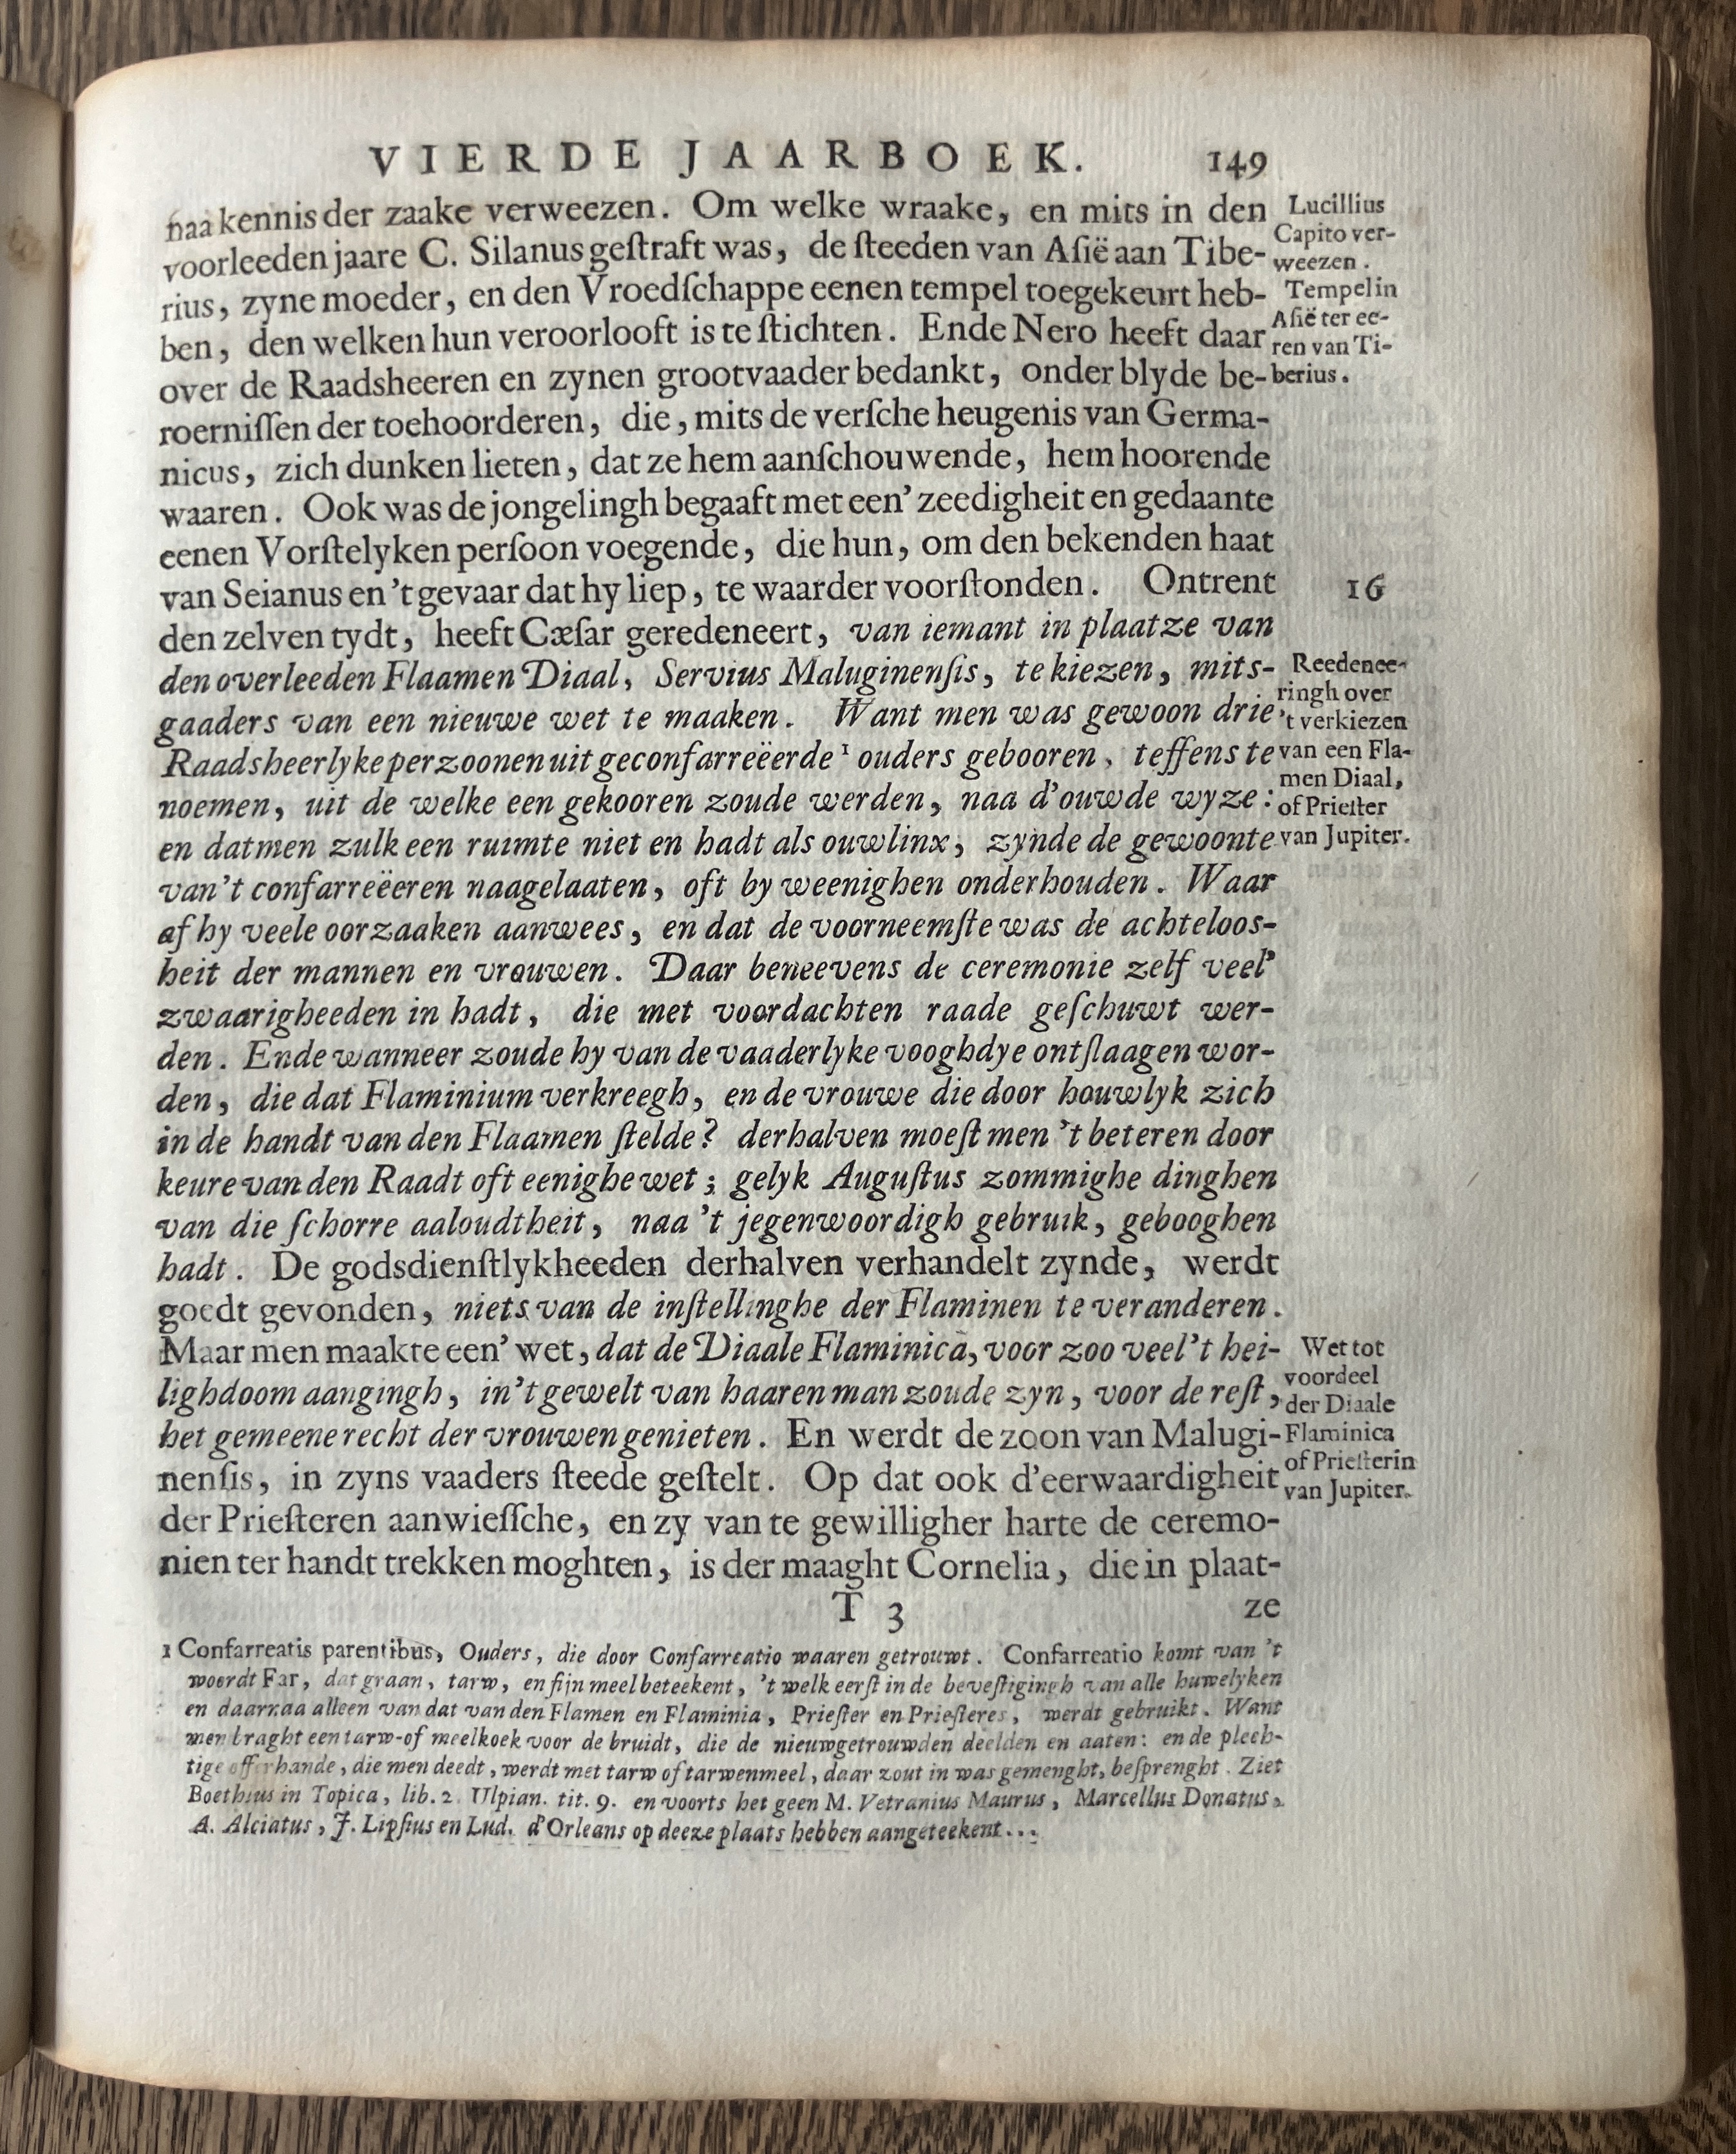 VIERDE JAARBOEK. 149
naa kennis der zaake verweezen. Om welke wraake, en mits in den
voorleeden jaare C. Silanus geſtraft was, de ſteeden van Aſië aan Tibe-
rius, zyne moeder, en den Vroedſchappe eenen tempel toegekeurt heb-
ben, den welken hun veroorlooft is te ſtichten. Ende Nero heeft daar
over de Raadsheeren en zynen grootvaader bedankt, onder blyde be-
roerniſſen der toehoorderen, die, mits de verſche heugenis van Germa-
nicus, zich dunken lieten, dat ze hem aanſchouwende, hem hoorende
waaren. Ook was de jongelingh begaaft met een' zeedigheit en gedaante
eenen Vorſtelyken perſoon voegende, die hun, om den bekenden haat
van Seianus en 't gevaar dat hy liep, te waarder voorſtonden. Ontrent
den zelven tydt, heeft Cæſar geredeneert, van iemant in plaatze van
den overleeden Flaamen Diaal, Servius Maluginenſis, te kiezen, mits-
gaaders van een nieuwe wet te maaken. Want men was gewoon drie
Raadsheerlyke perzoonen uit geconfarreëerde¹ ouders gebooren, teffens te
noemen, uit de welke een gekooren zoude werden, naa d'ouwde wyze:
en datmen zulk een ruimte niet en hadt als ouwlinx, zynde de gewoonte
van't confarreëeren naagelaaten, oft by weenighen onderhouden. Waar
af hy veele oorzaaken aanwees, en dat de voorneemſte was de achteloos-
heit der mannen en vrouwen. Daar beneevens de ceremonie zelf veel'
zwaarigheeden in hadt, die met voordachten raade geſchuwt wer-
den. Ende wanneer zoude hy van de vaaderlyke vooghdye ontſlaagen wor-
den, die dat Flaminium verkreegh, en de vrouwe die door houwlyk zich
in de handt van den Flaamen ſtelde? derhalven moeſt men 't beteren door
keure van den Raadt oft eenighe wet; gelyk Auguſtus zommighe dinghen
van die ſchorre aaloudtheit, naa 't jegenwoordigh gebruik, gebooghen
hadt. De godsdienſtlykheeden derhalven verhandelt zynde, werdt
goedt gevonden, niets van de inſtellinghe der Flaminen te veranderen.
Maar men maakte een' wet, dat de Diaale Flaminica, voor zoo veel't hei-
lighdoom aangingh, in't gewelt van haaren man zoude zyn, voor de reſt,
het gemeene recht der vrouwen genieten. En werdt de zoon van Malugi-
nenſis, in zyns vaaders ſteede geſtelt. Op dat ook d'eerwaardigheit
der Prieſteren aanwieſſche, en zy van te gewilligher harte de ceremo-
nien ter handt trekken moghten, is der maaght Cornelia, die in plaat-
T 3 ze
1 Confarreatis parentibus, Ouders, die door Confarreatio waaren getrouwt. Confarreatio komt van 't
woordt Far, dat graan, tarw, en fijn meel beteekent, 't welk eerſt in de beveſtigingh van alle huwelyken
en daarnaa alleen van dat van den Flamen en Flaminia, Prieſter en Prieſteres, werdt gebruikt. Want
men braght een tarw-of meelkoek voor de bruidt, die de nieuwgetrouwden deelden en aaten: en de plech-
tige offerhande, die men deedt, werdt met tarw of tarwenmeel, daar zout in was gemenght, beſprenght. Ziet
Boethius in Topica, lib. 2. Ulpian. tit. 9. en voorts het geen M. Vetranius Maurus, Marcellus Donatus,
A. Alciatus, J. Lipſius en Lud. d'Orleans op deeze plaats hebben aangeteekent...
Lucillius
Capito ver-
weezen.
Tempel in
Aſië ter ee-
ren van Ti-
berius.
16
Reedenee-
ringh over
't verkiezen
van een Fla-
men Diaal,
of Prieſter
van Jupiter.
Wet tot
voordeel
der Diaale
Flaminica
of Prieſterin
van Jupiter.